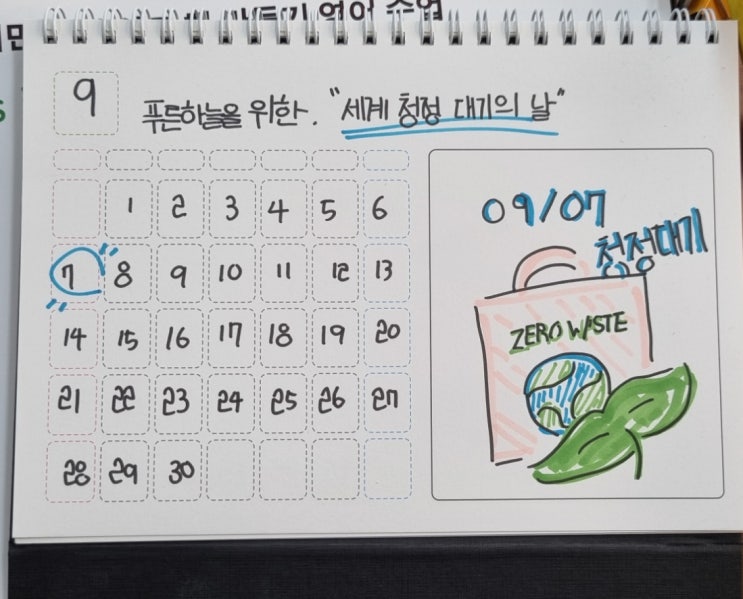 영어 수업
9
푸른하늘을 위한. "세계 청정 대기의 날"
1 2 3 4 5 6
7 8 9 10 11 12 13
14 15 16 17 18 19 20
21 22 23 24 25 26 27
28 29 30
09/07
청정대기
ZERO WASTE